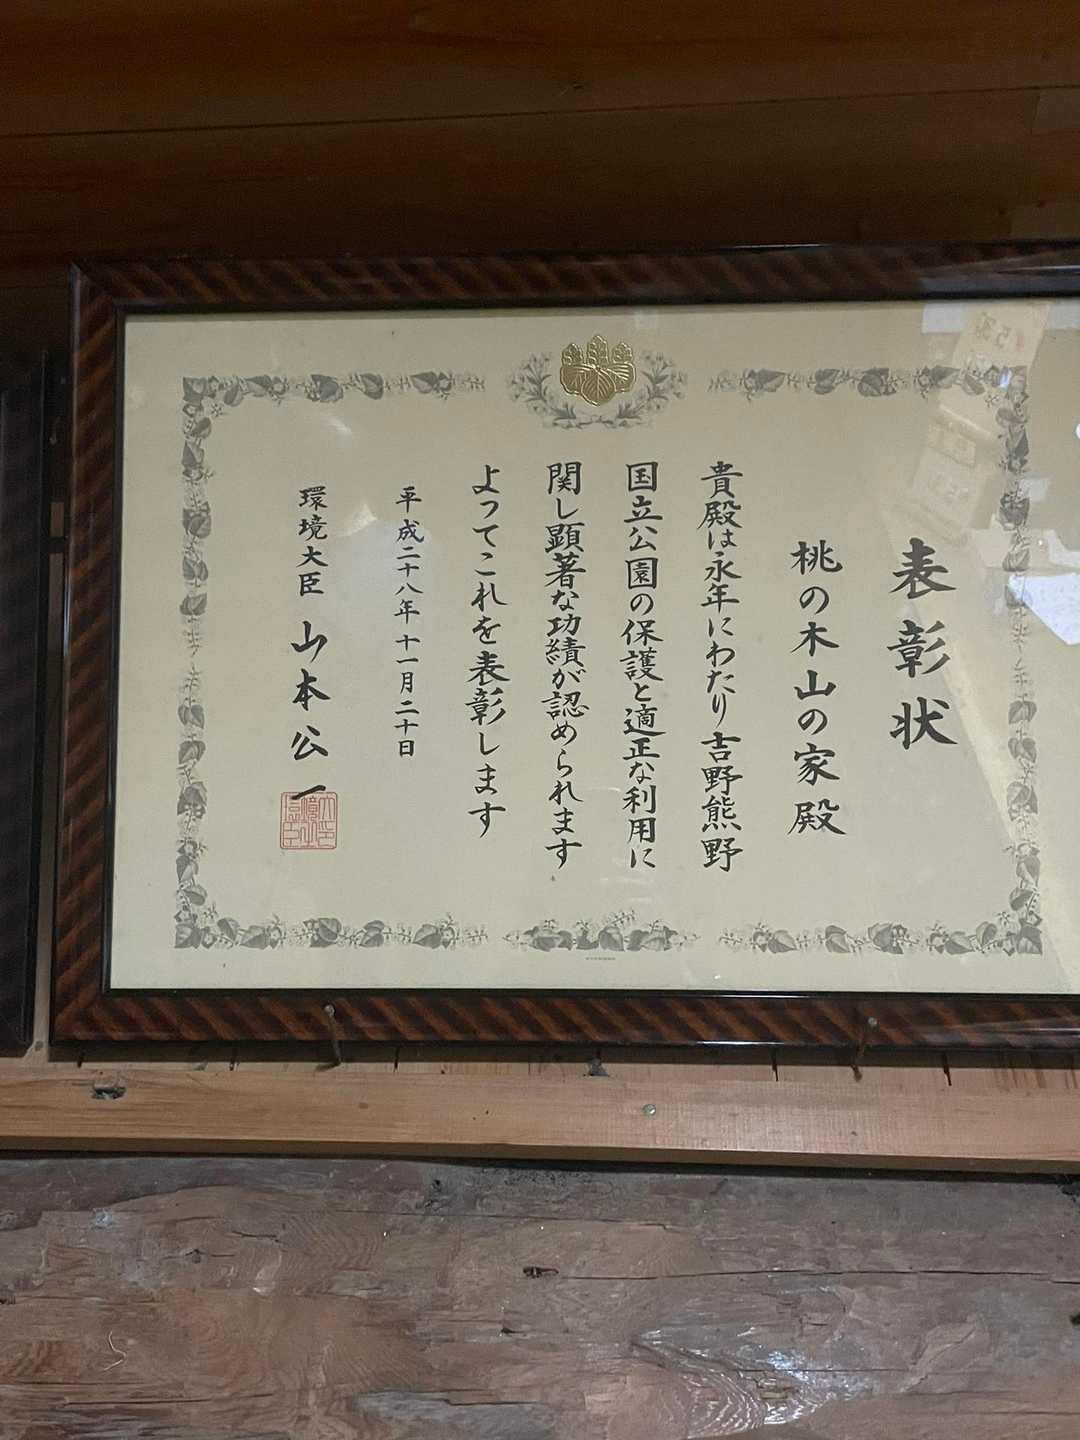 表彰状
桃の木山の家殿
貴殿は永年にわたり吉野熊野
国立公園の保護と適正な利用に
関し顕著な功績が認められます
よってこれを表彰します
平成二十八年十一月二十日
環境大臣 山本公一